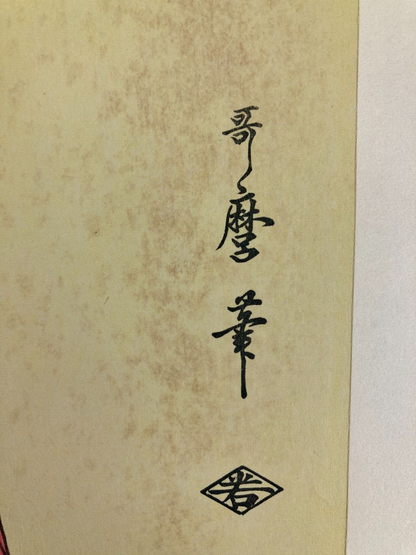 哥麿筆
若